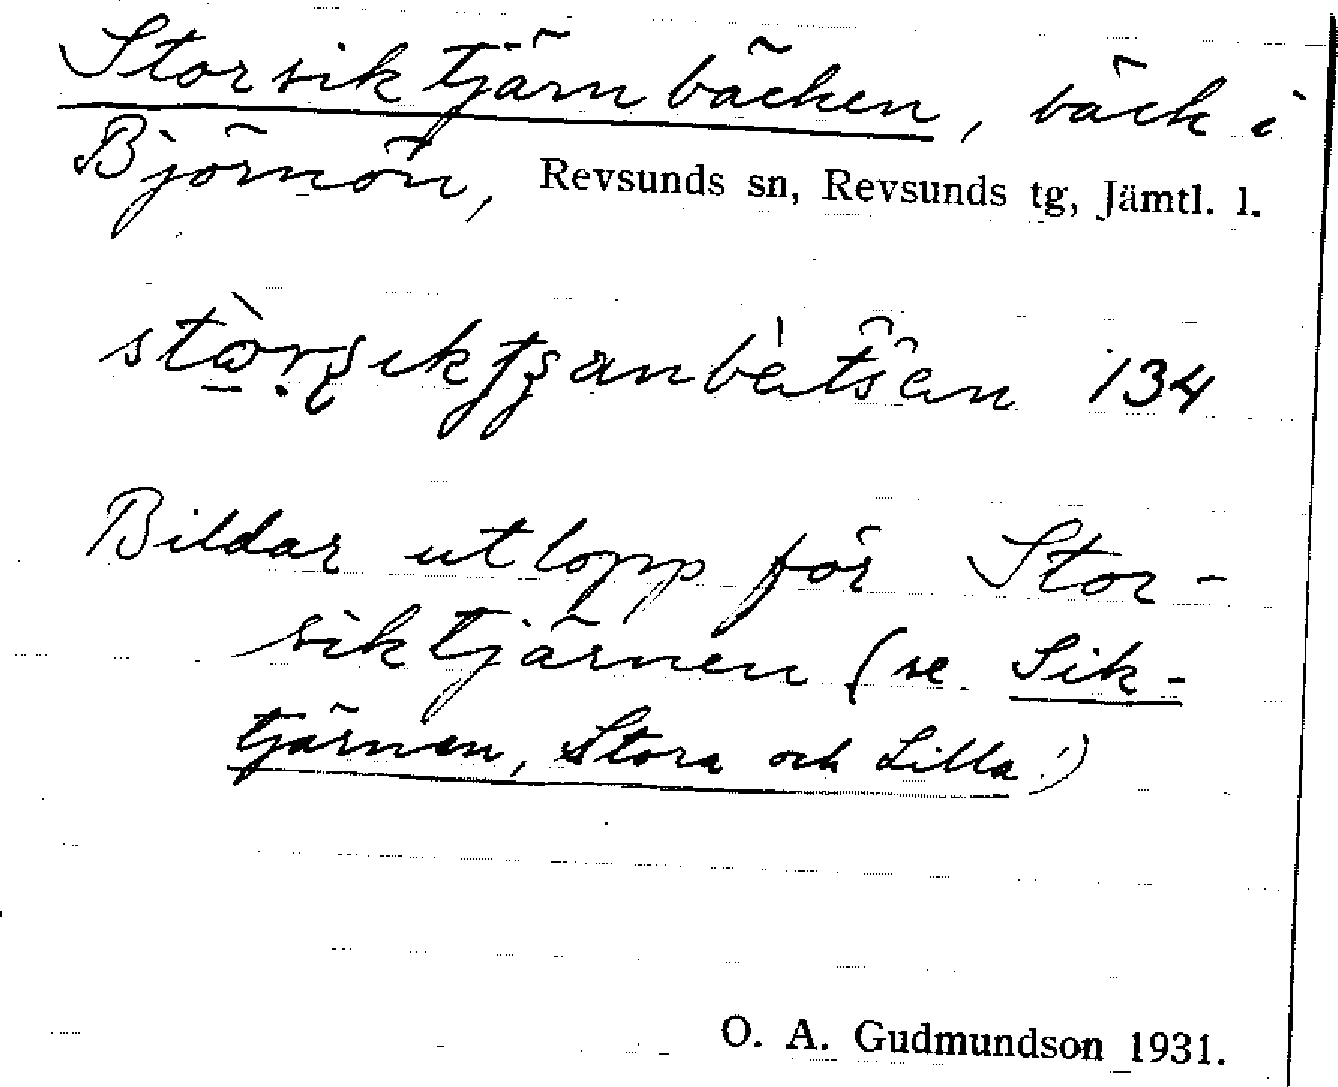 Storsiktjärnbäcken, bäck i
Björnön, Revsunds sn, Revsunds tg, Jämtl. l.
134
Bildar utlopp för Stor-
siktjärnen (se Sik-
tjärnen, Stora och Lilla!)
O. A. Gudmundson 1931.